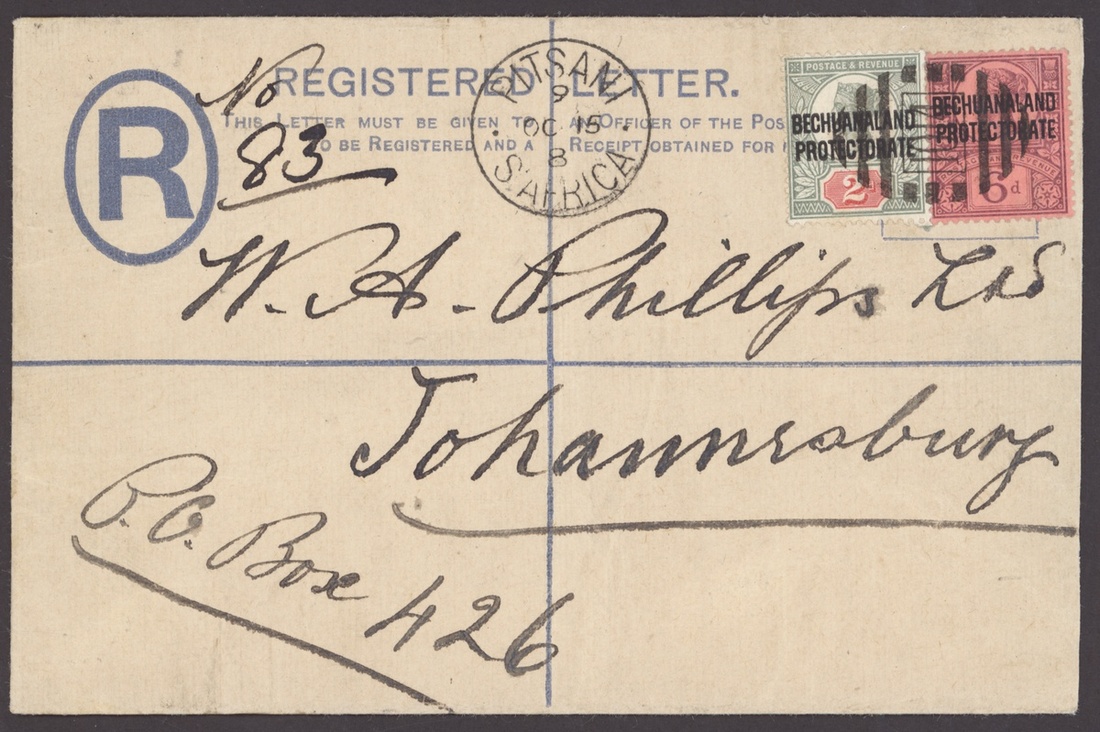 REGISTERED LETTER.
THIS LETTER MUST BE GIVEN TO AN OFFICER OF THE POS
TO BE REGISTERED AND A RECEIPT OBTAINED FOR
R
No
83
PITSANI
9
OC 15
8
S. AFRICA
POSTAGE & REVENUE
BECHUANALAND
PROTECTORATE
2d
BECHUANALAND
PROTECTORATE
REVENUE
6d
W. A. Phillips Ltd
Johannesburg
P.O. Box 426